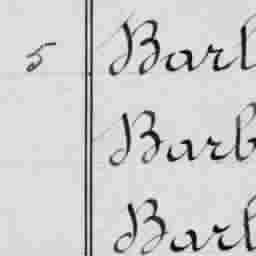 5 Barb
Barb
Barb